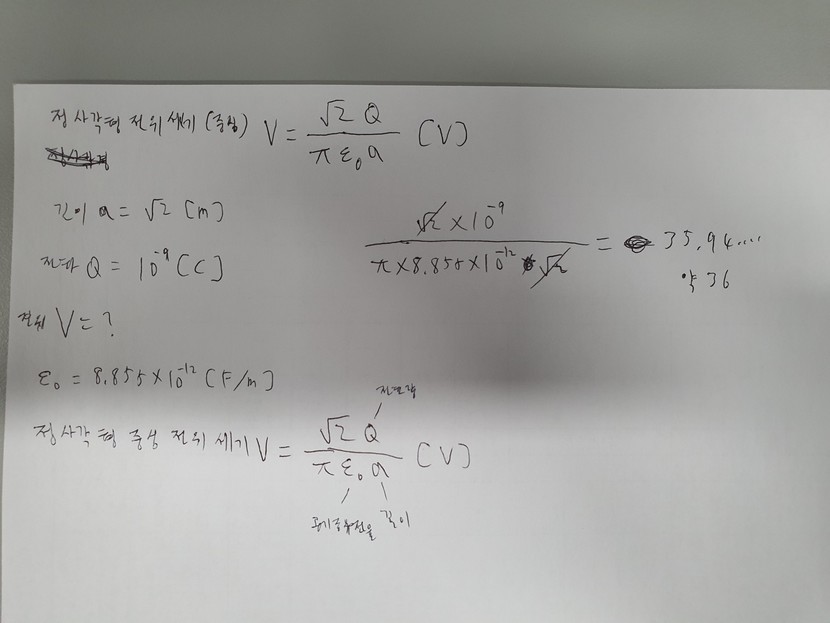 정사각형 전위 세기 (중심) V = √2 Q / π ε₀ a [V]
길이 a = √2 [m]
전하 Q = 10⁻⁹ [C]
전위 V = ?
ε₀ = 8.855 × 10⁻¹² [F/m]
√2 × 10⁻⁹ / π × 8.855 × 10⁻¹² √2 = 35.94....
약 36
전하량
정사각형 중심 전위 세기 V = √2 Q / π ε₀ a [V]
공기중유전율 길이